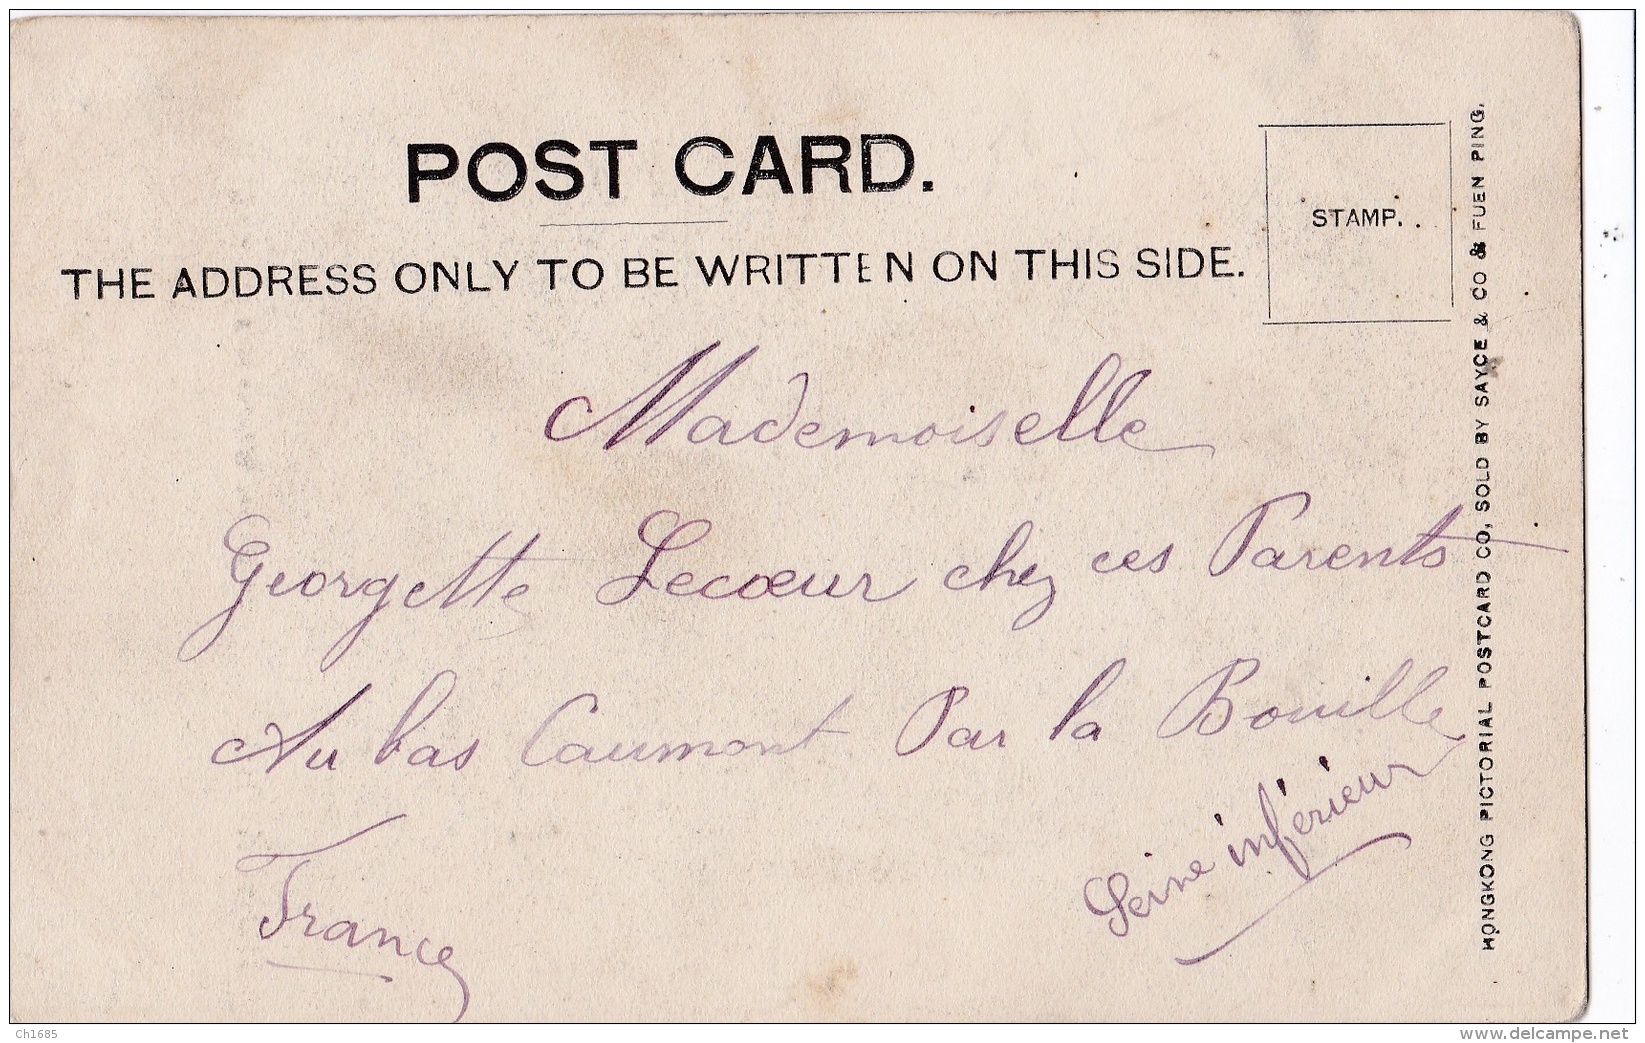 POST CARD.
THE ADDRESS ONLY TO BE WRITTEN ON THIS SIDE.
STAMP.
Mademoiselle
Georgette Lecœur chez ces Parents
Au bas Caumont Par la Bouille
Seine inférieur
France
HONGKONG PICTORIAL POSTCARD CO, SOLD BY SAYCE & CO & FUEN PING.
Ch1685
www.delcampe.net